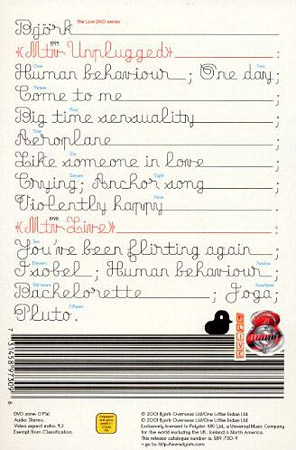 Björk The Live DVD series
1994
«Mtv Unplugged» ;
One Two
Human behaviour ; One day;
Three
Come to me ;
Four
Big time sensuality ;
Five
Aeroplane ;
Six
Like someone in love ;
Seven Eight
Crying; Anchor song ;
Nine
Violently happy ;
1998
«Mtv Live» ;
Ten
You've been flirting again ;
Eleven Twelve
Isobel ; Human behaviour ;
Thirteen Fourteen
Bachelorette ; Joga;
Fifteen
Pluto.
7 31458 97309 6
DVD zone: 0 (Pal)
Audio: Stereo.
Video aspect ratio: 4:3
Exempt from Classification.
© 2001 Bjork Overseas Ltd/One Little Indian Ltd
℗ 2001 Bjork Overseas Ltd/One Little Indian Ltd
Exclusively licensed to Polydor (UK) Ltd., a Universal Music Company
for the world excluding the UK, Iceland & North America.
This release catalogue number is: 589 730-9
> go to: http://www.bjork.com